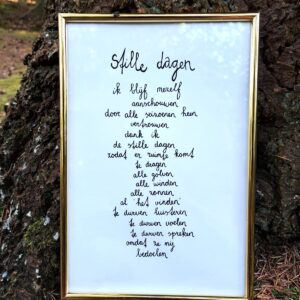 stille dagen
ik blijf mezelf
aanschouwen
door alle seizoenen heen
vertrouwen
dank ik
de stille dagen
zodat er ruimte komt
te dragen
alle golven
alle winden
alle zonnen
al het vinden
te durven luisteren
te durven voelen
te durven spreken
omdat ze mij
bedoelen